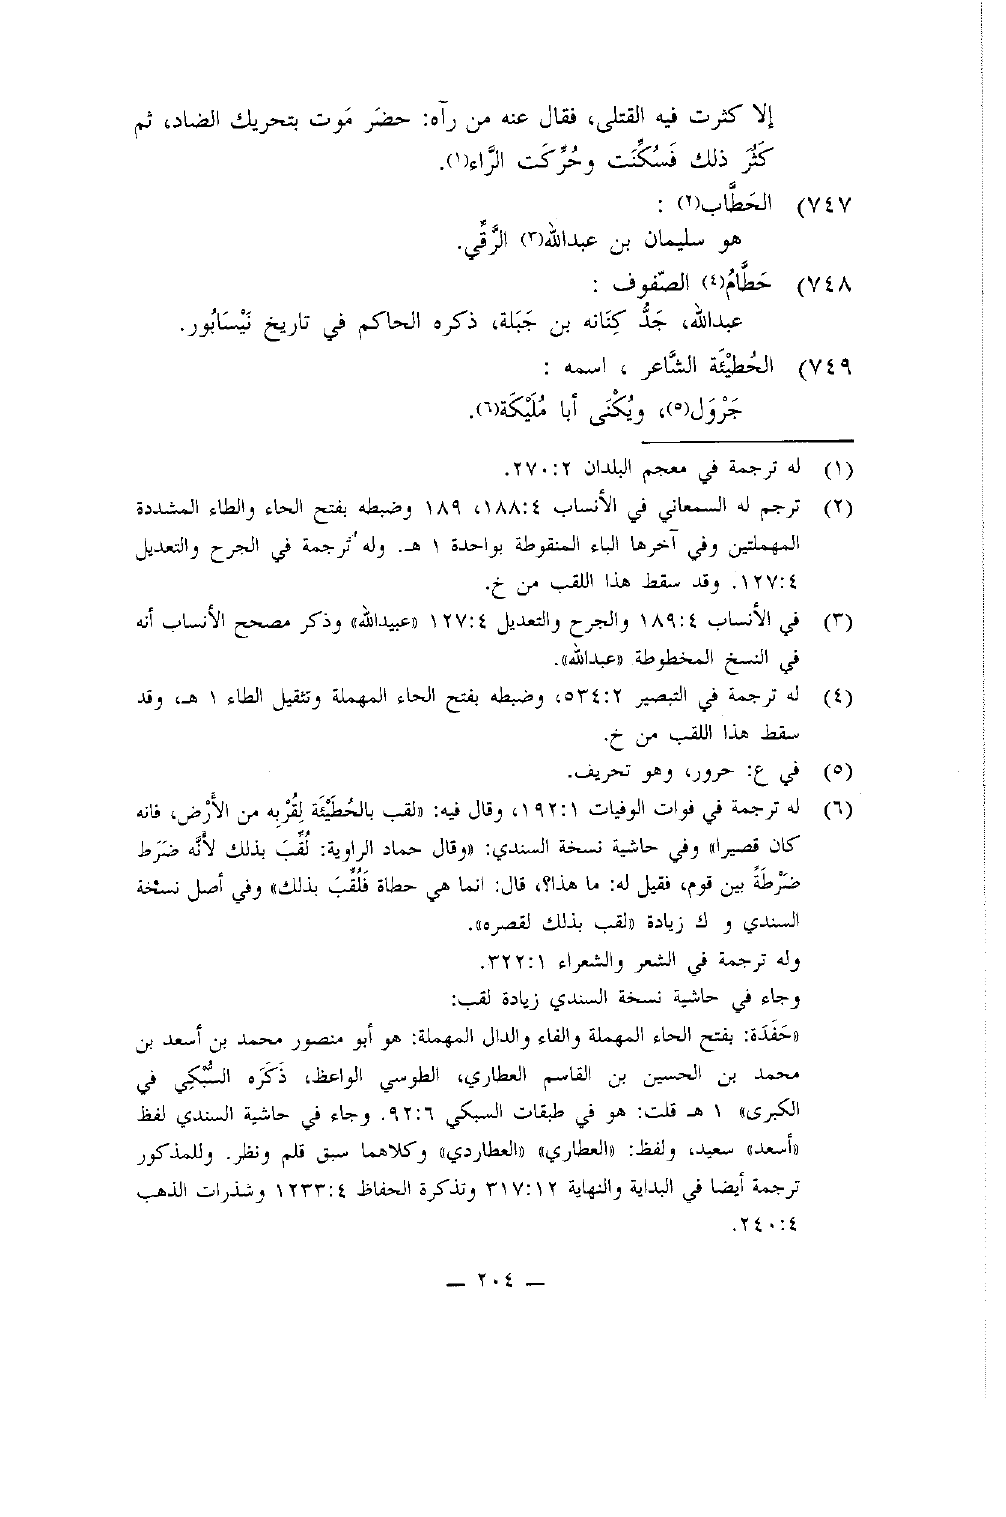 إلا كثرت فيه القتلى، فقال عنه من رآه: حضَر مَوت بتحريك الضاد، ثم
كَثُرَ ذلك فَسُكِّنَت وحُرِّكَت الرَّاء(١).
٧٤٧) الحَطَّاب(٢) :
هو سليمان بن عبدالله(٣) الرَّقِّي.
٧٤٨) حَطَّامُ(٤) الصّفوف :
عبدالله، جَدُّ كِنَانه بن جَبَلة، ذكره الحاكم في تاريخ نَيْسَابُور.
٧٤٩) الحُطيْئَة الشَّاعر ، اسمه :
جَرْوَل(٥)، ويُكْنَى أبا مُلَيْكَة(٦).
(١) له ترجمة في معجم البلدان ٢٧٠:٢.
(٢) ترجم له السمعاني في الأنساب ١٨٨:٤، ١٨٩ وضبطه بفتح الحاء والطاء المشددة
المهملتين وفي آخرها الباء المنقوطة بواحدة ١ هـ. وله ترجمة في الجرح والتعديل
١٢٧:٤. وقد سقط هذا اللقب من خ.
(٣) في الأنساب ١٨٩:٤ والجرح والتعديل ١٢٧:٤ «عبيدالله» وذكر مصحح الأنساب أنه
في النسخ المخطوطة «عبدالله».
(٤) له ترجمة في التبصير ٥٣٤:٢، وضبطه بفتح الحاء المهملة وتثقيل الطاء ١ هـ، وقد
سقط هذا اللقب من خ.
(٥) في ع: حرور، وهو تحريف.
(٦) له ترجمة في فوات الوفيات ١٩٢:١، وقال فيه: «لقب بالحُطَيْئَة لِقُرْبِه من الأَرْض، فانه
كان قصيرا» وفي حاشية نسخة السندي: «وقال حماد الراوية: لُقِّبَ بذلك لأنَّه ضَرَط
ضَرْطَةً بين قوم، فقيل له: ما هذا؟، قال: انما هي حطاة فَلُقِّبَ بذلك» وفي أصل نسخة
السندي و ك زيادة «لقب بذلك لقصره».
وله ترجمة في الشعر والشعراء ٣٢٢:١.
وجاء في حاشية نسخة السندي زيادة لقب:
«حَفَدَة: بفتح الحاء المهملة والفاء والدال المهملة: هو أبو منصور محمد بن أسعد بن
محمد بن الحسين بن القاسم العطاري، الطوسي الواعظ، ذَكَرَه السُّبْكِي في
الكبرى» ١ هـ قلت: هو في طبقات السبكي ٩٢:٦. وجاء في حاشية السندي لفظ
«أسعد» سعيد، ولفظ: «العطاري» «العطاردي» وكلاهما سبق قلم ونظر. وللمذكور
ترجمة أيضا في البداية والنهاية ٣١٧:١٢ وتذكرة الحفاظ ١٢٣٣:٤ وشذرات الذهب
٢٤٠:٤.
— ٢٠٤ —